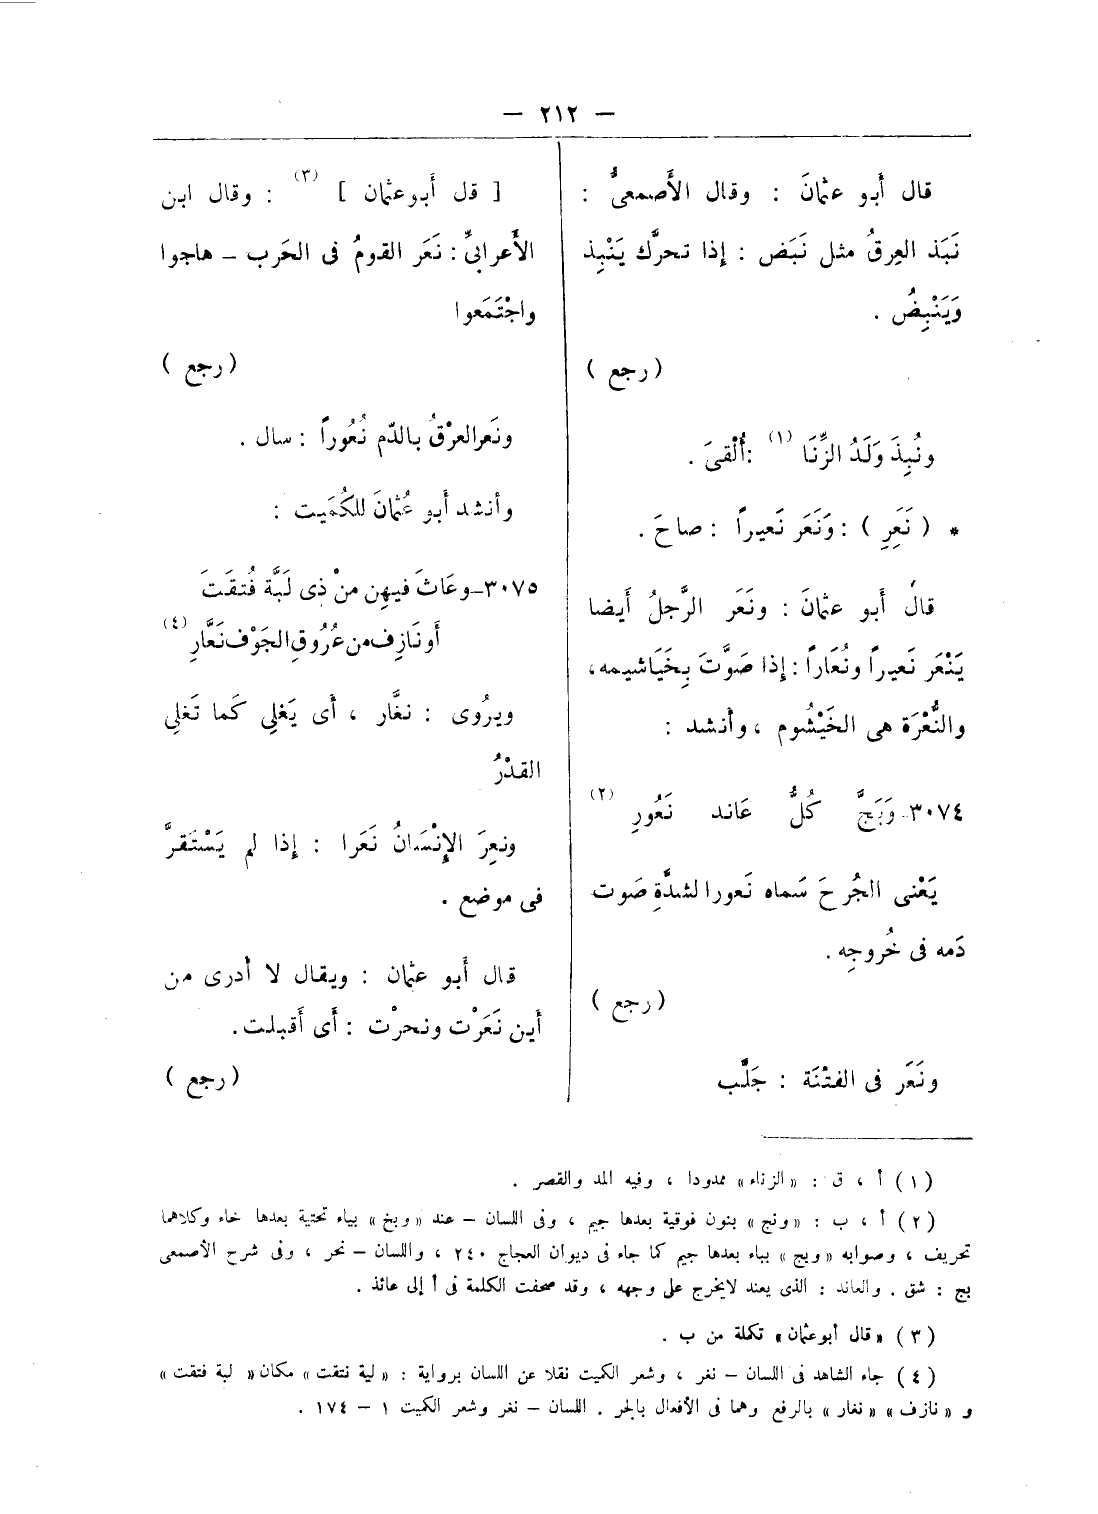 — ٢١٢ —
قال أَبو عثمانَ : وقال الأَصمعىُّ :
نَبَذ العِرقُ مثل نَبَض : إِذا تحرَّك يَنْبِذ
وَيَنْبِضُ .
( رجع )
ونُبِذَ وَلَدُ الزِّنَا (١) :أُلْقىَ .
* ( نَعَرِ ) : وَنَعَر نَعيراً : صاحَ .
قال أَبو عثمانَ : ونَعَر الرَّجلُ أَيضا
يَنْعَر نَعيراً ونُعَاراً : إِذا صَوَّتَ بِخَيَاشيمه ،
والنُّعْرَة هى الخَيْشُوم ، وأَنشد :
٣٠٧٤- وَبَجَّ كُلَّ عَاند نَعُورِ (٢)
يَعْنى الجُرحَ سَماه نَعورا لشدَّةِ صَوت
دَمه فى خُروجِه .
( رجع )
ونَعَر فى الفتْنَة : جَلَّب
[ قل أَبوعثمان ] (٣) : وقال ابن
الأَعرابىِّ : نَعَر القومُ فى الحَرب – هاجوا
واجْتَمَعوا
( رجع )
ونَعر العرْقُ بالدّم نُعُوراً : سال .
وأَنشد أَبو عُثمانَ للكُمَيت :
٣٠٧٥–وعَاثَ فيهِن منْ ذِى لَبَّة فُتقَتَ
أَو نَازِف من عُرُوقِ الجَوْف نَعَّارِ (٤)
ويرُوى : نغَّار ، أَى يَغلِى كَما تَغلِى
القدْرُ
ونعِرَ الإِنْسَانُ نَعَرا : إِذا لم يَسْتَقرَّ
فى موضع .
قال أَبو عثمان : ويقال لا أَدرى من
أَين نَعَرْت ونحرْت : أَى أَقبلت .
( رجع )
(١) أ ، ق : «الزناء» ممدودا ، وفيه المد والقصر .
(٢) أ ، ب : «ونج» بنون فوقية بعدها جيم ، وفى اللسان – عند «وبخ» بياء تحتية بعدها خاء وكلاهما
تحريف ، وصوابه «وبج» بباء بعدها جيم كما جاء فى ديوان العجاج ٢٤٠ ، واللسان – نحر ، وفى شرح الأصمعى
بج : شق . والعاند : الذى يعند لايخرج على وجهه ، وقد صحفت الكلمة فى أ إلى عائذ .
(٣) «قال أبوعثمان» تكملة من ب .
(٤) جاء الشاهد فى اللسان – نغر ، وشعر الكميت نقلا عن اللسان برواية : «لية نتقت» مكان «لبة فتقت»
و «نازف» «نغار» بالرفع وهما فى الأفعال بالجر . اللسان – نغر وشعر الكميت ١ – ١٧٤ .